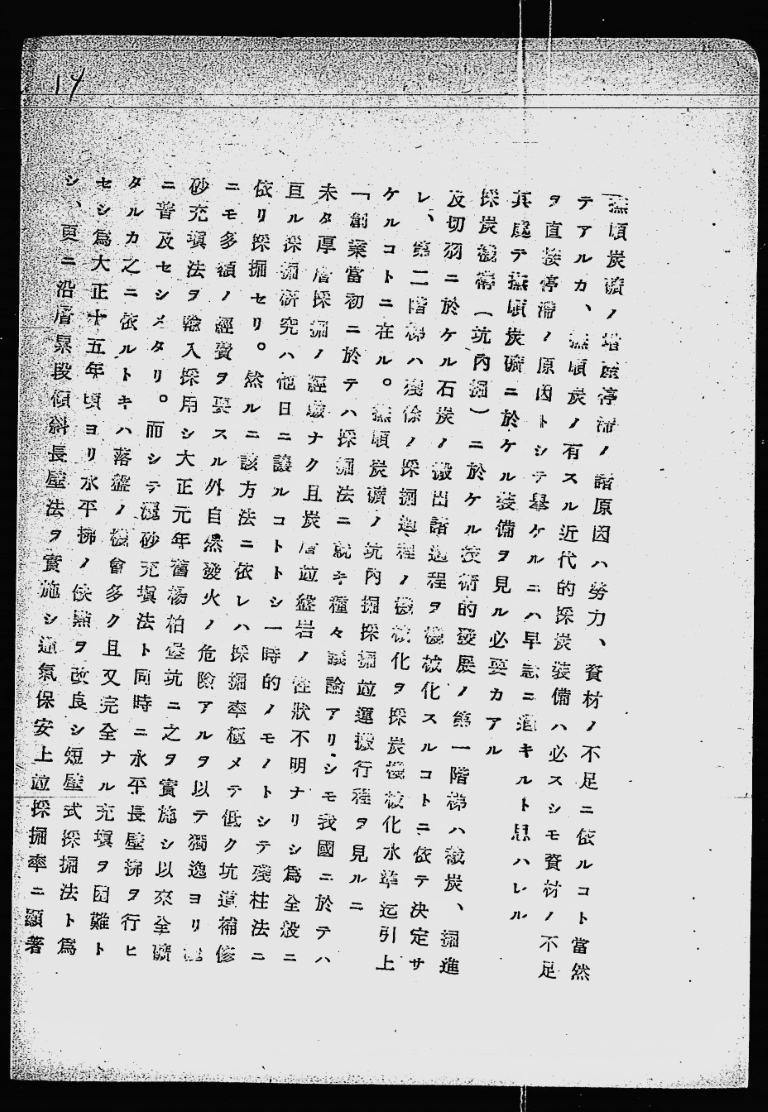 14
撫順炭礦ノ増産停滞ノ諸原因ハ勞力、資材ノ不足ニ依ルコト當然
テアルカ、撫順炭ノ有スル近代的採炭装備ハ必スシモ資材ノ不足
ヲ直接停滞ノ原因トシテ擧ケルニハ早急ニ過キルト思ハレル
其處テ撫順炭礦ニ於ケル装備ヲ見ル必要カアル
採炭機構(坑内掘)ニ於ケル技術的發展ノ第一階梯ハ截炭、掘進
及切羽ニ於ケル石炭ノ搬出諸過程ヲ機械化スルコトニ依テ決定サ
レ、第二階梯ハ殘餘ノ採掘過程ノ機械化ヲ採炭機械化水準迄引上
ケルコトニ在ル。撫順炭礦ノ坑内掘採掘竝運搬行程ヲ見ルニ
「創業當初ニ於テハ採掘法ニ就キ種々議論アリシモ我國ニ於テハ
未タ厚層採掘ノ經驗ナク且炭層竝盤岩ノ性狀不明ナリシ為全般ニ
亘ル採掘研究ハ他日ニ讓ルコトトシ一時的ノモノトシテ殘柱法ニ
依リ採掘セリ。然ルニ該方法ニ依レハ採掘率極メテ低ク坑道補修
ニモ多額ノ經費ヲ要スル外自然發火ノ危險アルヲ以テ獨逸ヨリ
砂充塡法ヲ輸入採用シ大正元年舊楊柏堡坑ニ之ヲ實施シ以來全礦
ニ普及セシメタリ。而シテ砂充塡法ト同時ニ水平長壁拂ヲ行ヒ
タルカ之ニ依ルトキハ落盤ノ機會多ク且又完全ナル充塡ヲ困難ト
セシ為大正十五年頃ヨリ水平拂ノ缺點ヲ改良シ短壁式採掘法ト為
シ、更ニ沿層昇段傾斜長壁法ヲ實施シ通氣保安上竝採掘率ニ顯著